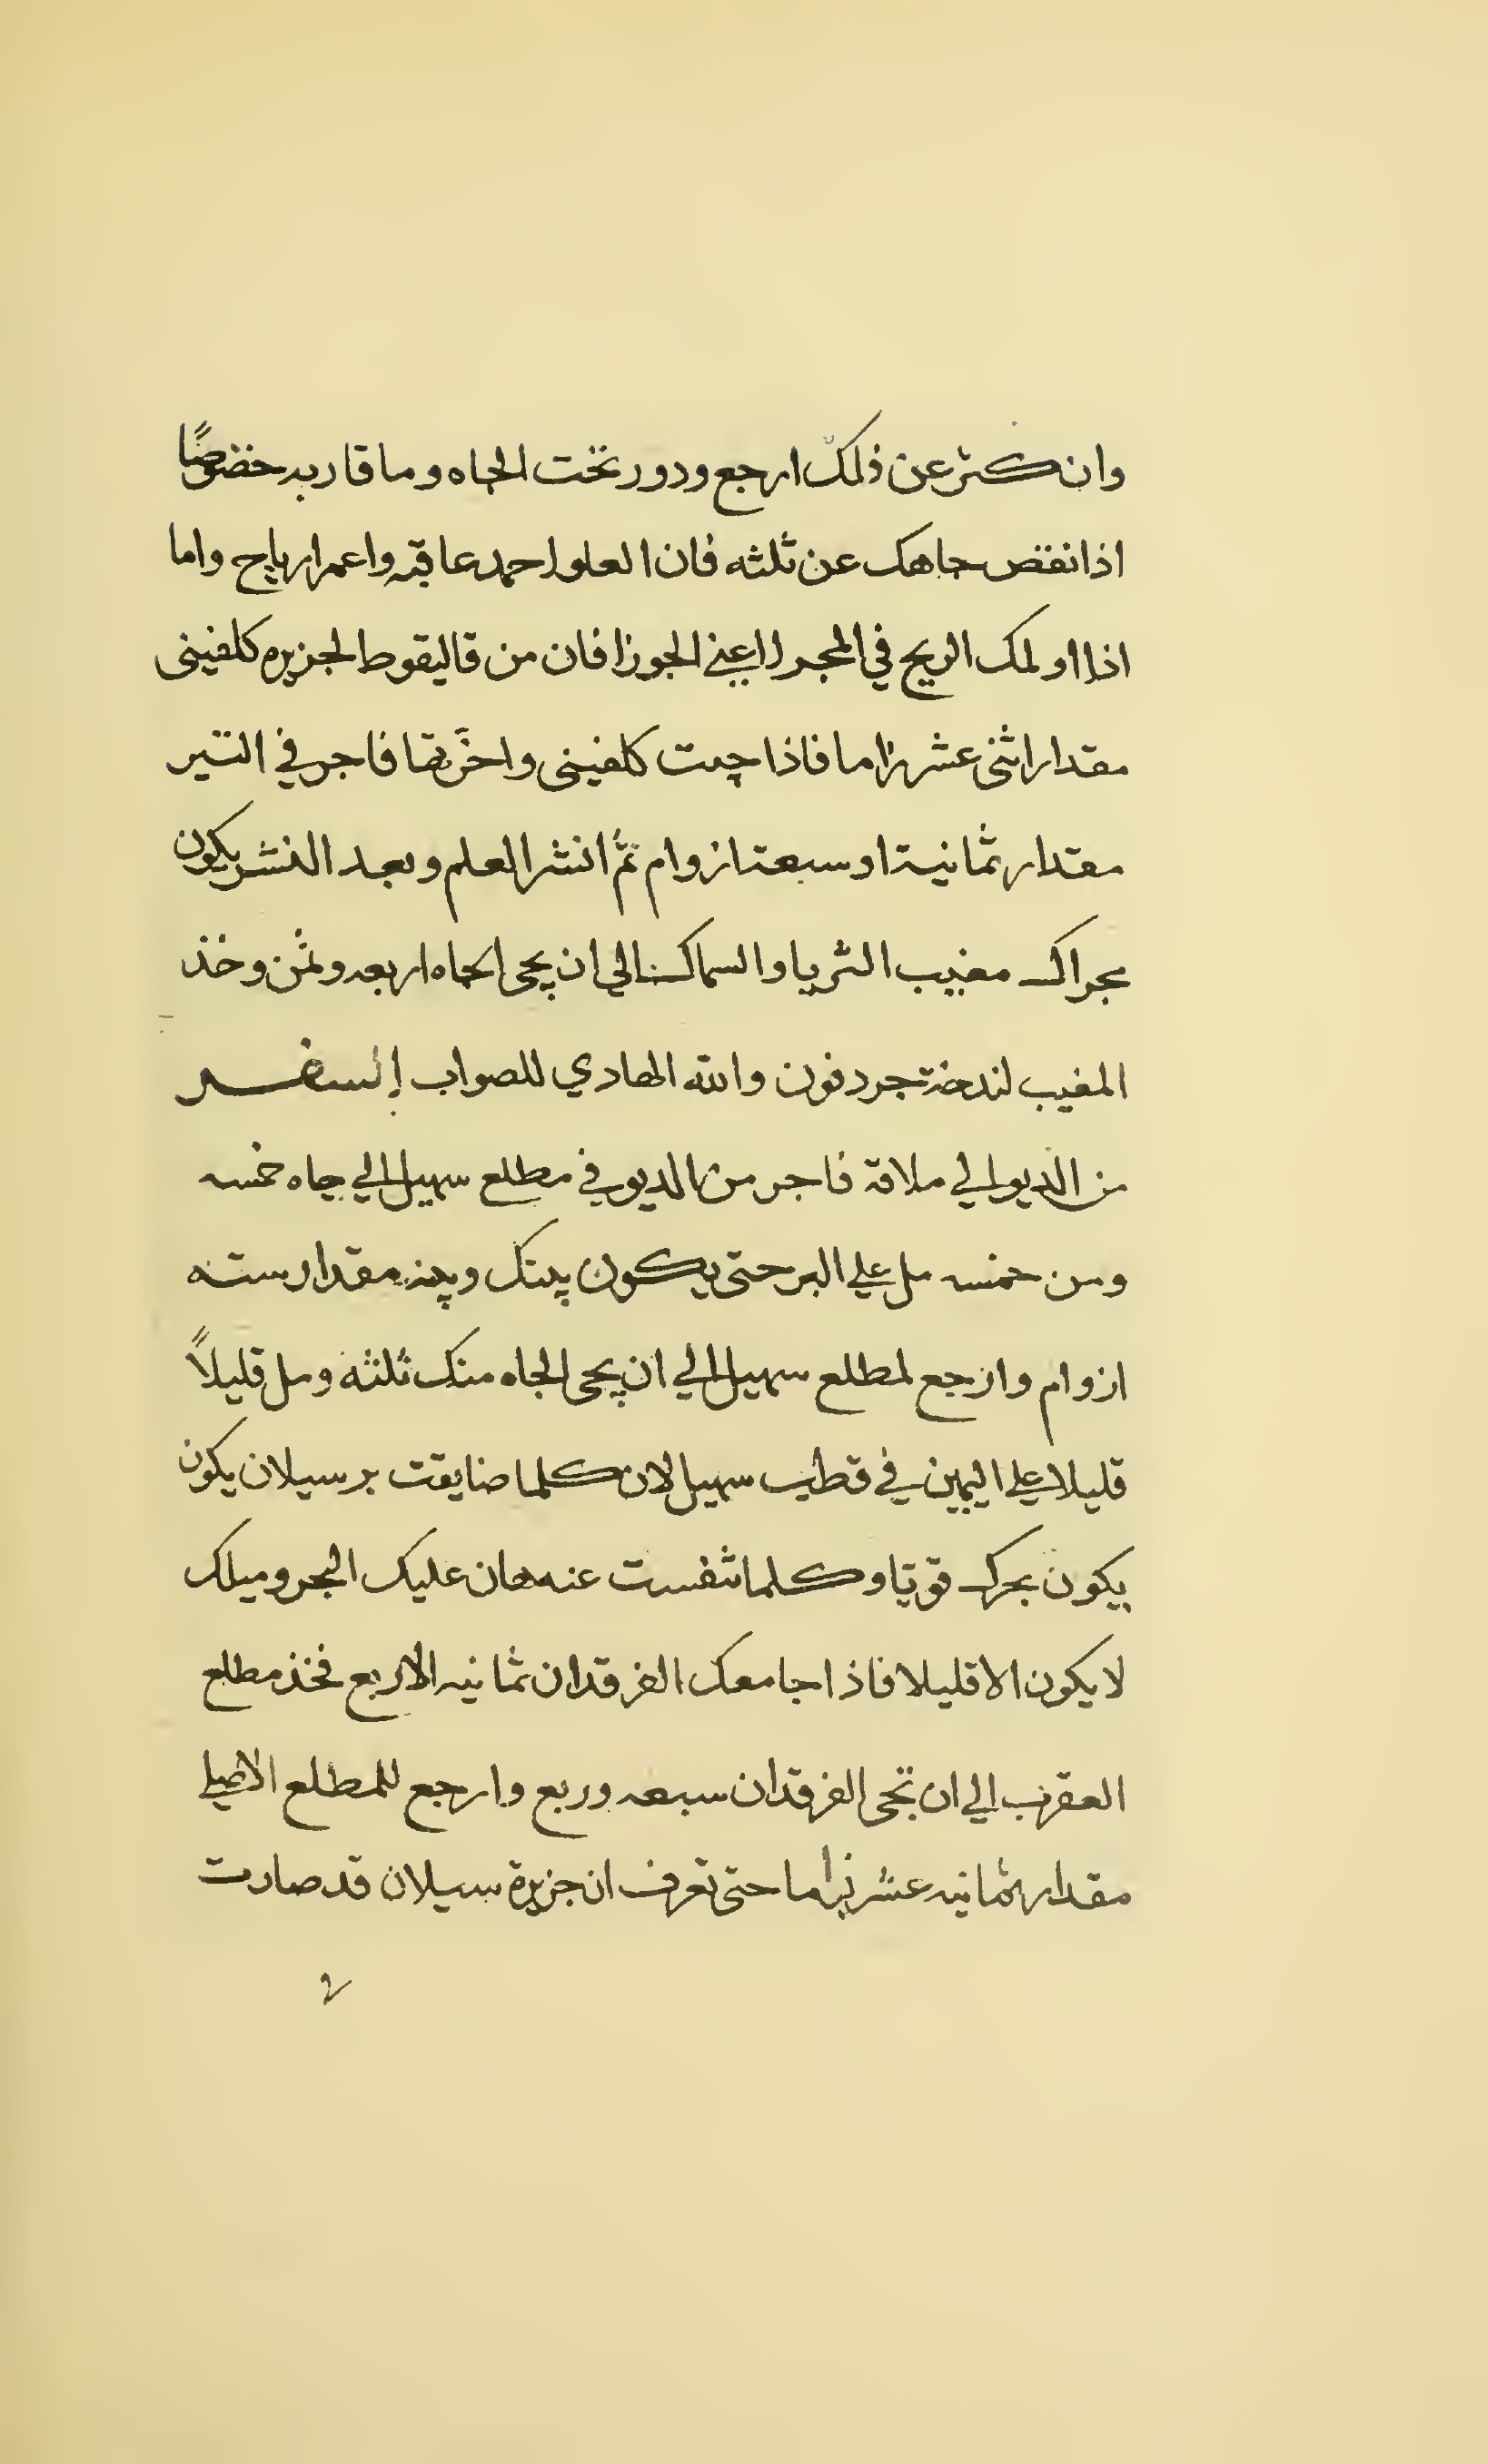 وان كثر عن ذلك ارجع ودور تحت الجاه وما قاربه خضوصًا
اذا نقص جاهك عن ثلثه فان العلو احمد عاقبه واعمر ارياح واما
اذا اولمك الريح في المجرا اعني الجوزا فان من قاليقوط لجزيره كلفيني
مقدار اثني عشر زاما فاذا جيت كلفيني واخَّرتها فاجر في التير
مقدار ثمانية او سبعة ازوام ثمَّ انشر العلم وبعد النشر يكون
مجراك مغيب الثريا والسماك الي ان يجي الجاه اربعه وثمن وخذ
المغيب لندخة جردفون والله الهادي للصواب إلسفر
من الديو الي ملاقة فاجر من الديو في مطلع سهيل الي جاه خمسه
ومن خمسه مل علي البر حتي يكون بينك وبينه مقدار سته
ازوام وارجع لمطلع سهيل الي ان يجي الجاه منك ثلثه ومل قليلاً
قليلا علي اليمين في قطب سهيل لان كلما ضايقت بر سيلان يكون
يكون بحرك قويّا وكلما تنفست عنه هان عليك البحر وميلك
لا يكون الا قليلا فاذا جا معك الفرقدان ثمانيه الا ربع فخذ مطلع
العقرب الي ان تجي الفرقدان سبعه وربع وارجع للمطلع الاصلي
مقدار ثمانيه عشر زاما حتي تعرف ان جزيرة سيلان قد صارت